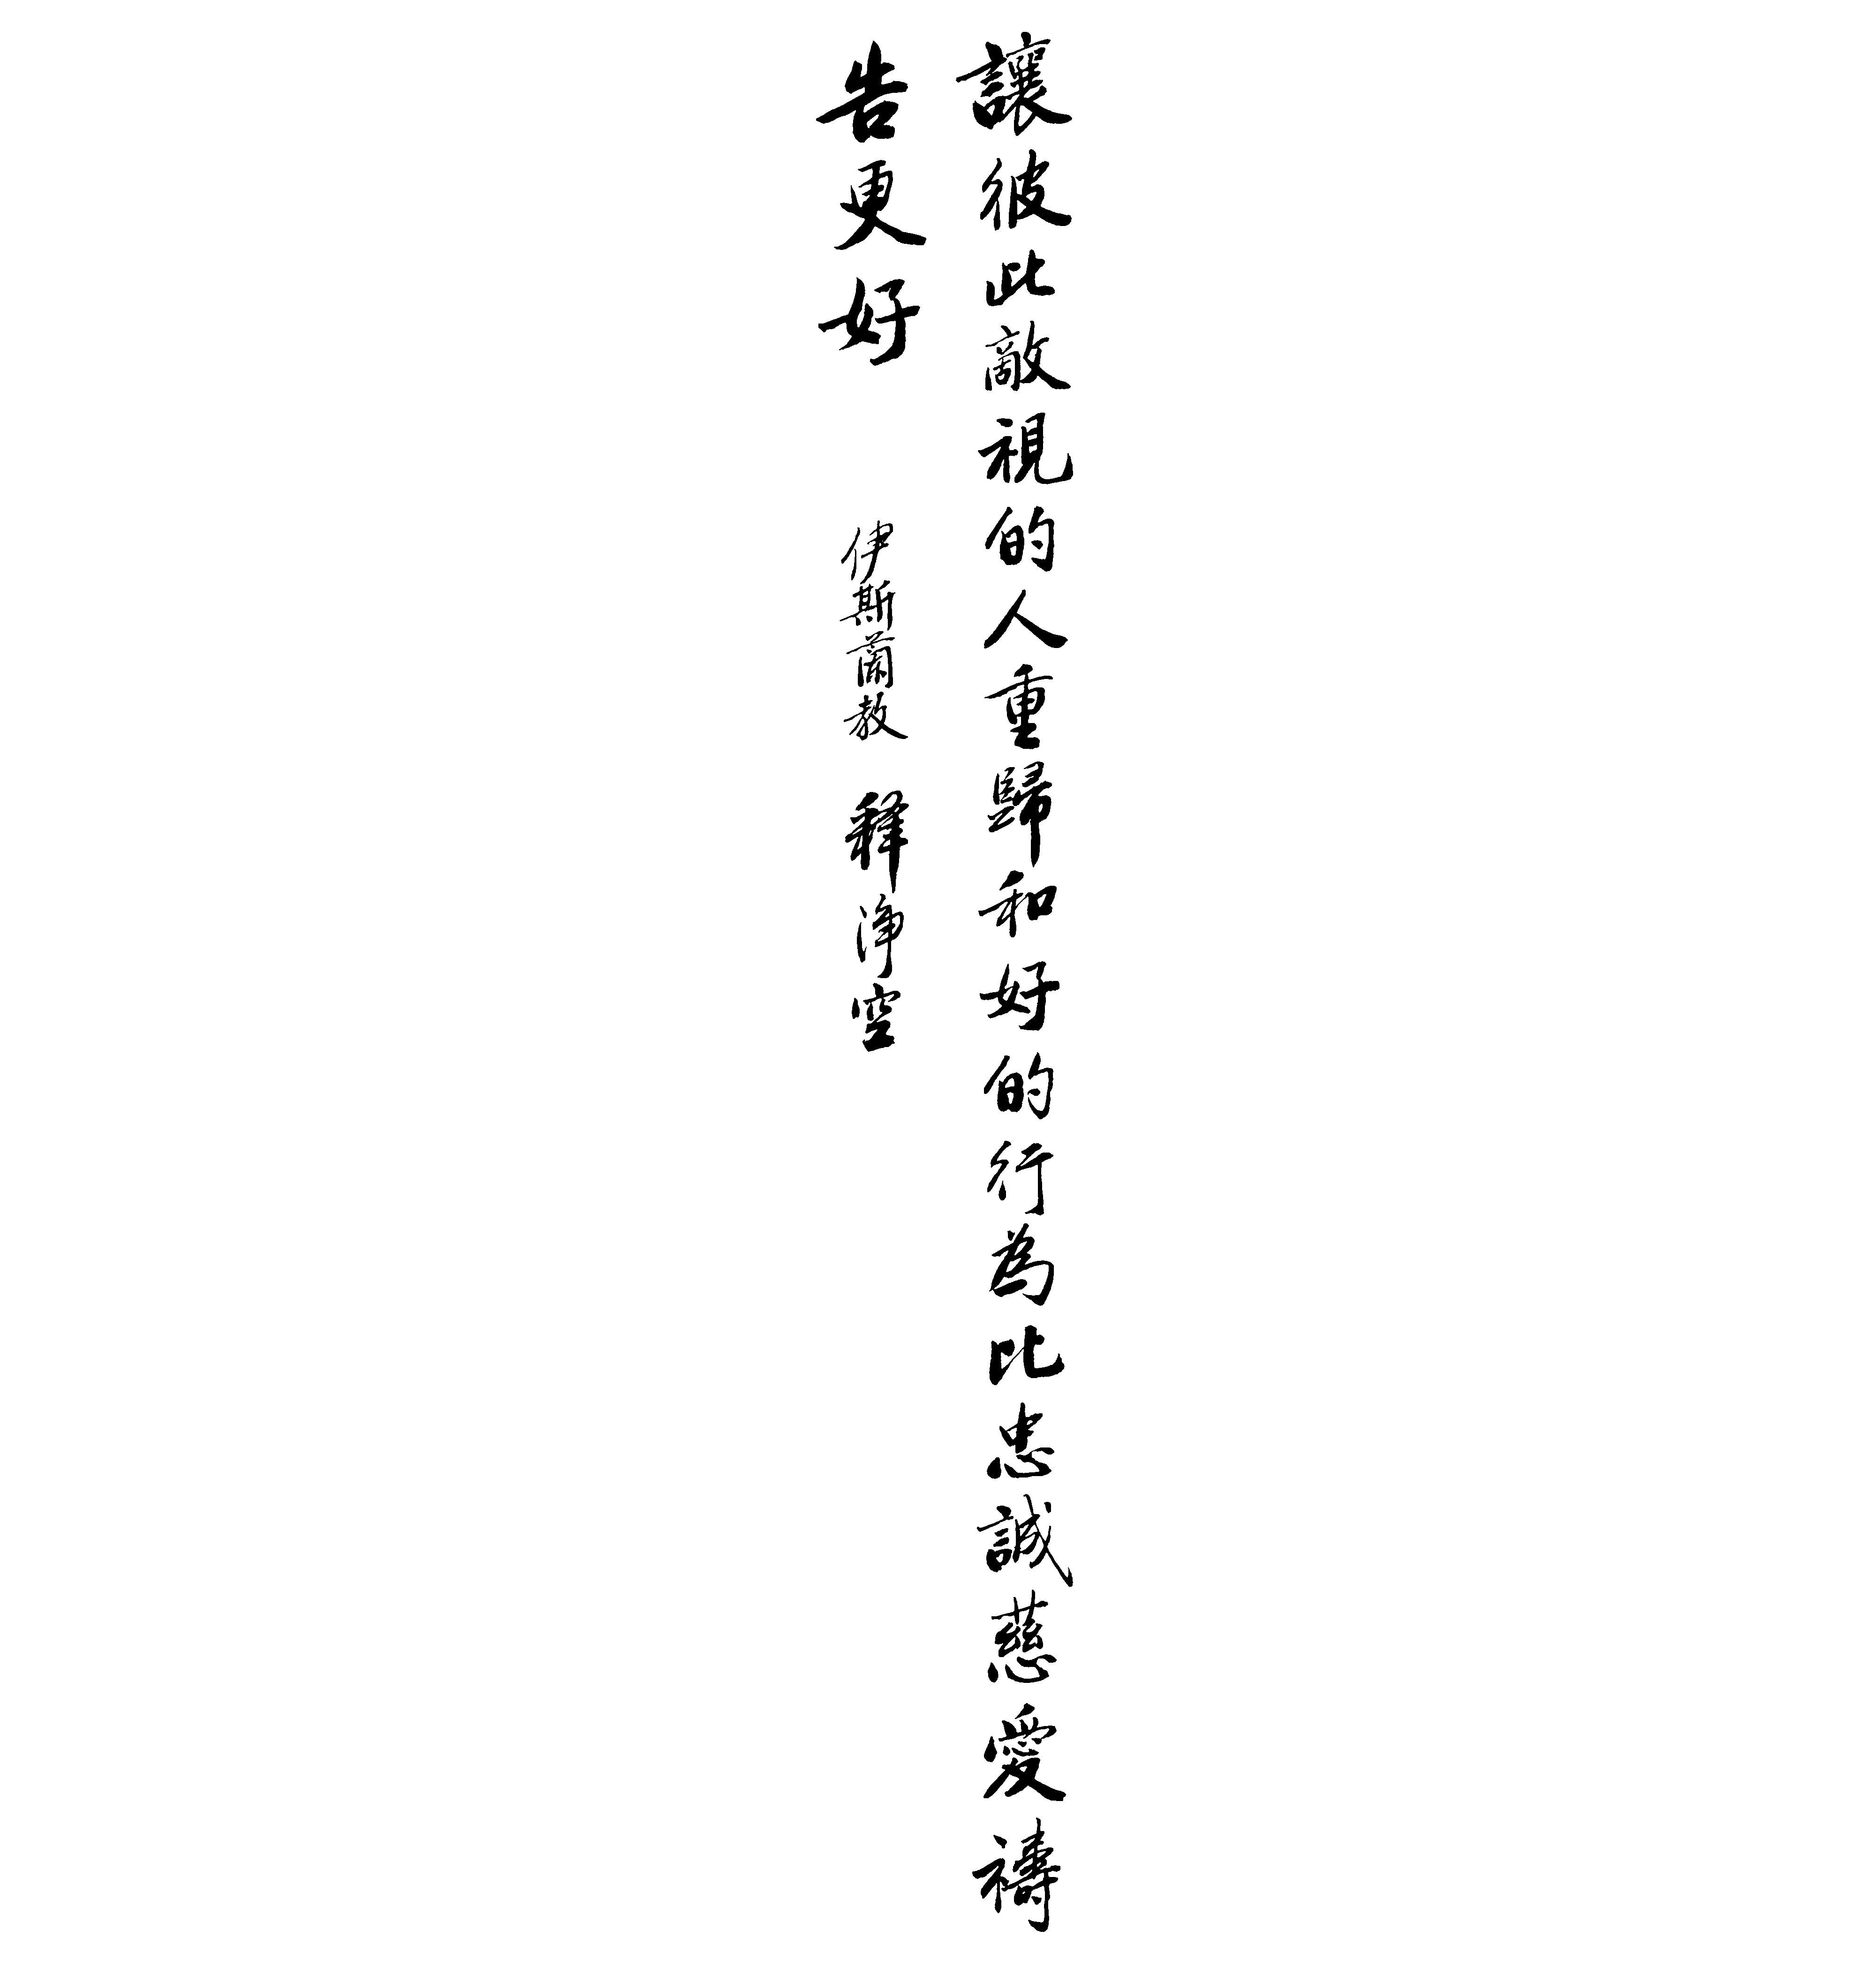 讓彼此敵視的人重歸和好的行為比忠誠慈愛禱
告更好 伊斯蘭教 釋淨空